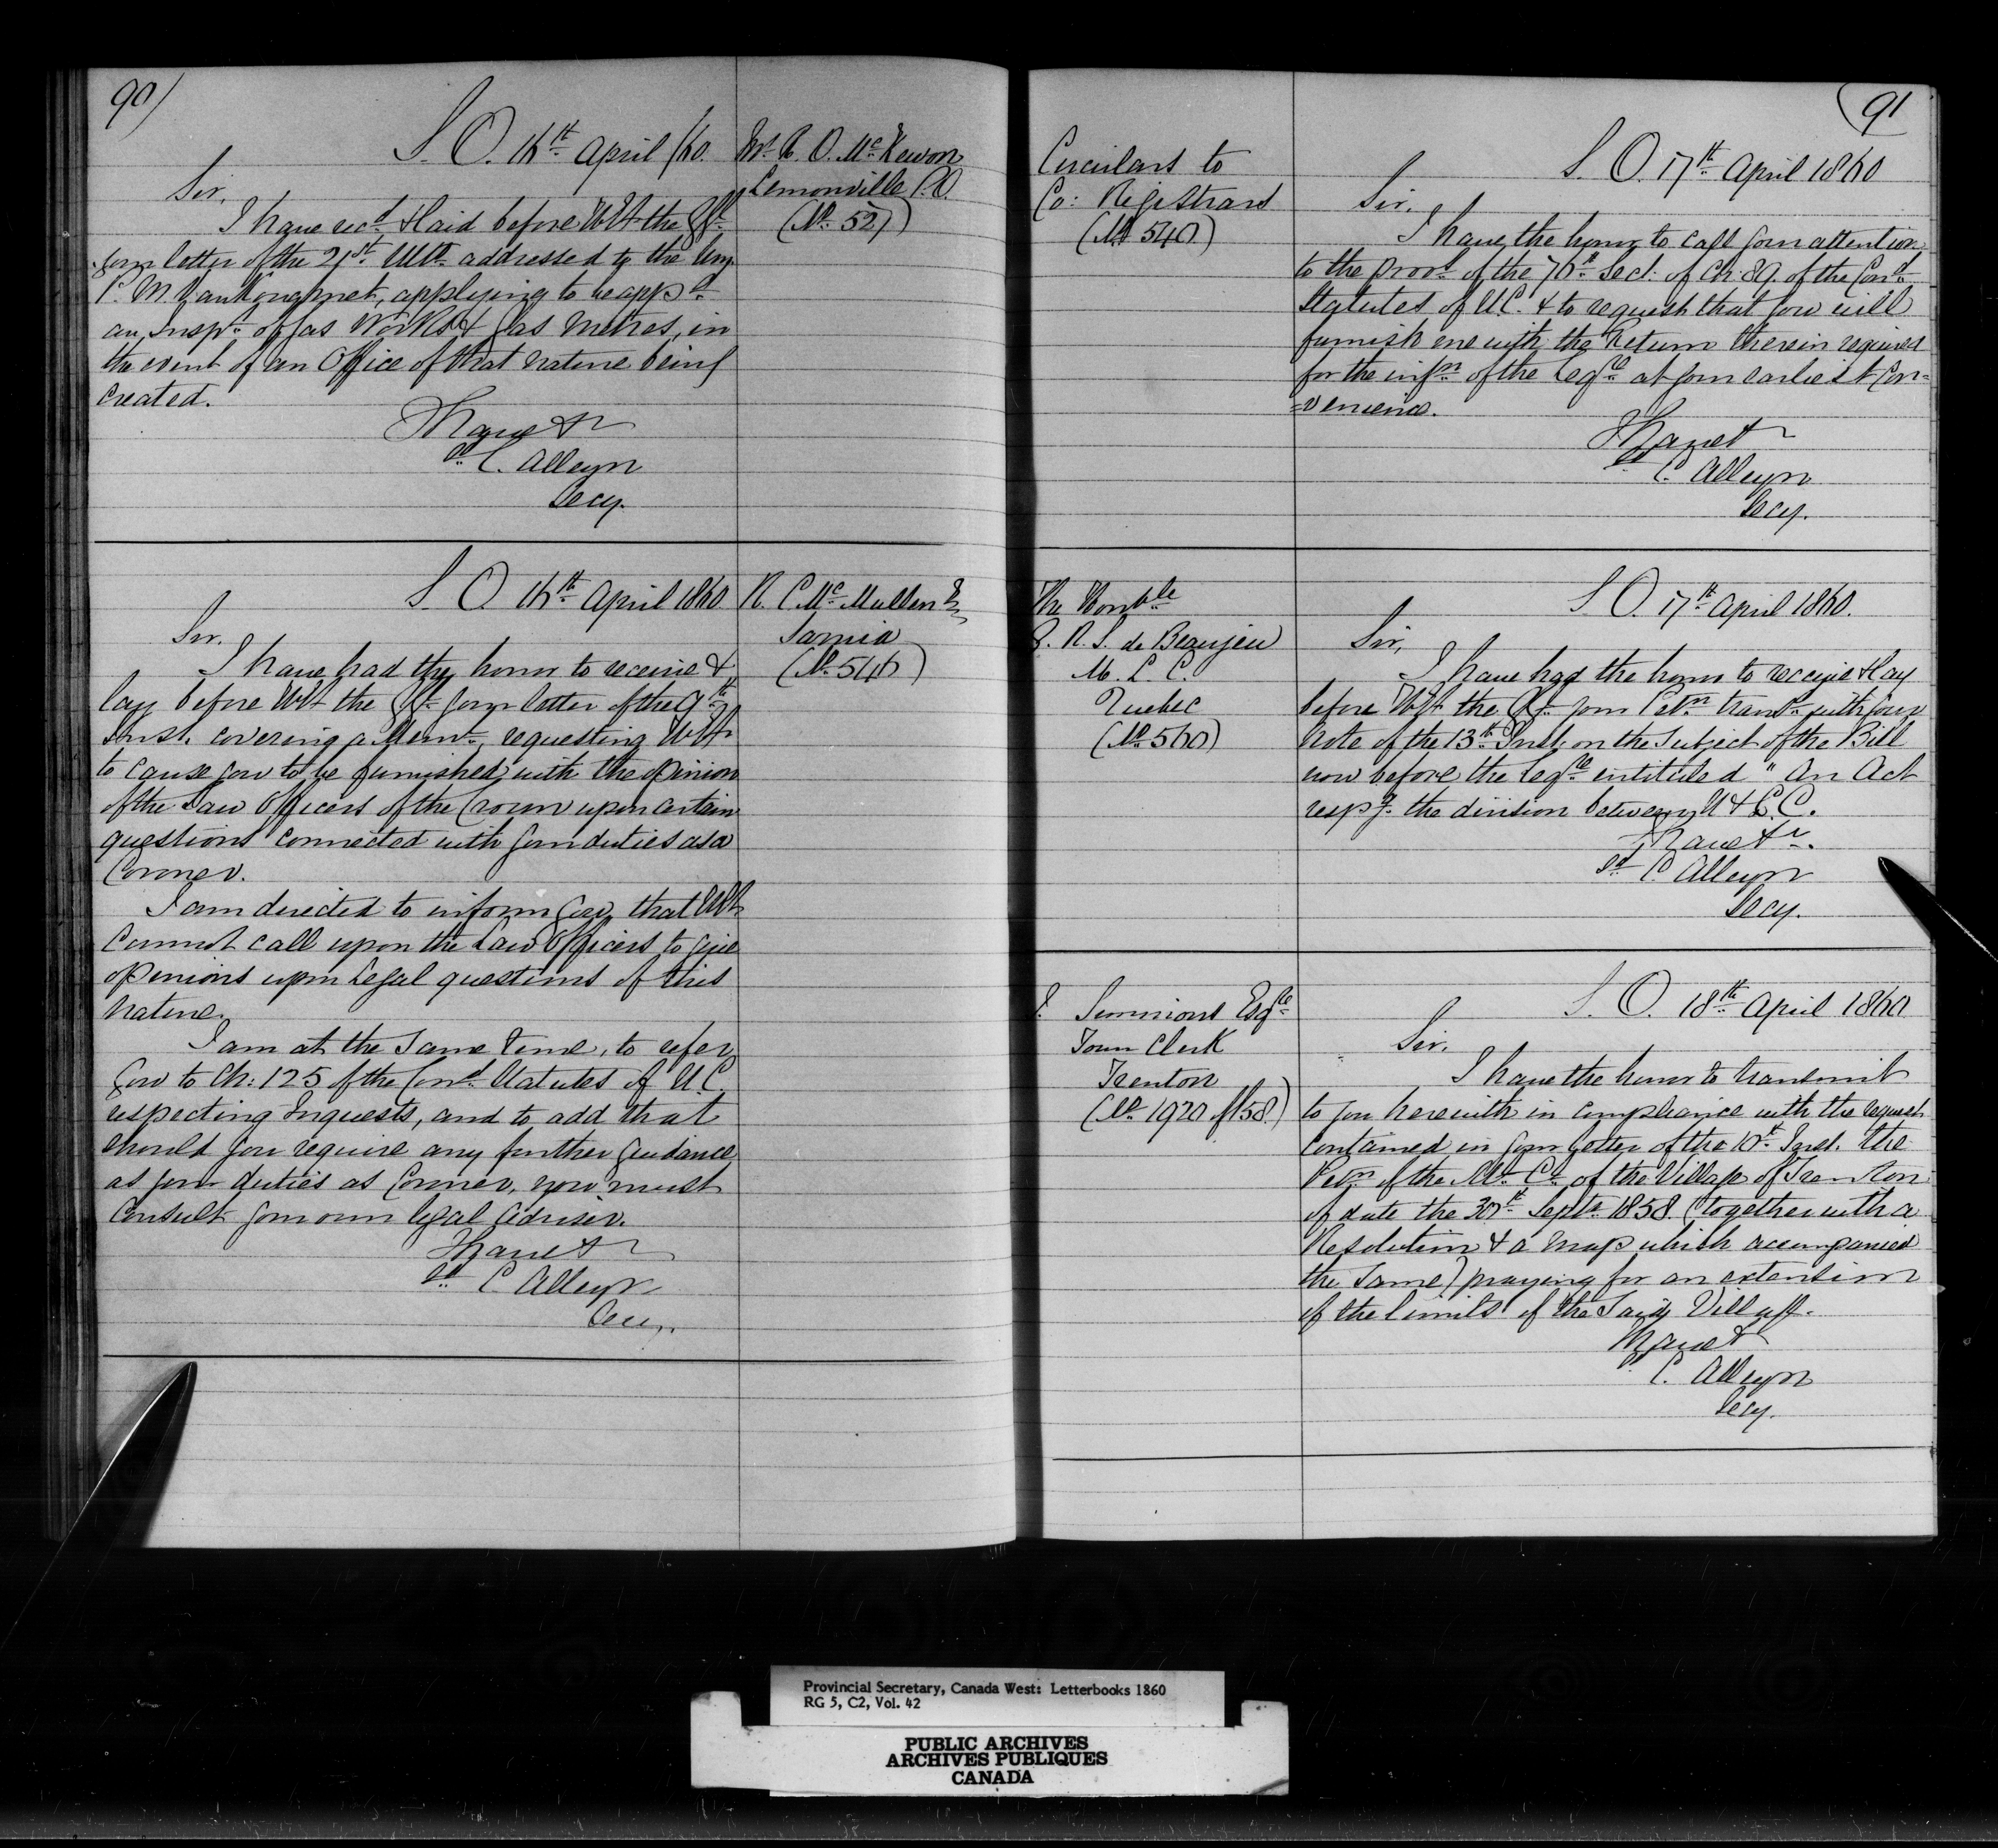 90)
S. O. 16th April /60.
Mr. R. O. McKewon
Lemonville P.O.
(No. 527)
Sir,
I have recd. & laid before HEt the Gr.
your letter of the 21st. Ulto. addressed to the Hon
P. M. Vankoughnet, applying to be appd.
an Inspr. of Gas Works & Gas Metres, in
the event of an Office of that nature being
created.
I have &c
sd. C. Alleyn
Secy.
S. O. 16th. April 1860
R. C. McMullen E
Sarnia
(No. 546)
Sir.
I have had the honor to receive &
lay before HEt the Gr. your letter of the 9th.
Inst. covering a Memo. requesting HEt
to cause you to be furnished with the opinion
of the Law Officers of the Crown upon certain
questions connected with your duties as a
Coroner.
I am directed to inform you, that HEt
cannot call upon the Law Officers to give
opinions upon Legal questions of this
nature.
I am at the same time, to refer
you to Ch: 125 of the Cond. Statutes of U.C.
respecting Inquests, and to add that
should you require any further guidance
as your duties as Coroner, you must
consult your own legal adviser.
I have &c
sd. C. Alleyn
Secy.
91
Circulars to
Co: Registrars
(No 540)
S. O. 17th. April 1860
Sir.
I have the honor to call your attention
to the provs. of the 76th Sect: of Ch: 89. of the Cond.
Statutes of U.C. & to request that you will
furnish me with the Return therein required
for the infn. of the Legre. at your earliest Con=
=venience.
I have &
sd C. Alleyn
Secy.
The Honble
G. R. S. de Beaujeu
M. L. C.
Quebec
(No. 560)
S. O. 17th. April 1860.
Sir,
I have had the honor to receive & lay
before HEt the Gr. your Petn. transd. with your
note of the 13th Inst. on the subject of the Bill
now before the Legre. entituled " An Act
respg. the division between U & L. C.
I have &c.
sd. C. Alleyn
Secy.
Simmons Esqre.
Town Clerk
Trenton
(No. 1920 of 58.)
S. O. 18th. April 1860
Sir.
I have the honor to transmit
to you herewith in compliance with the request
contained in your letter of the 10th. Inst. the
Petn. of the Ml. Cl. of the Village of Trenton
of date the 30th. Septr. 1858. (together with a
Resolution & a map which accompanied
the same) praying for an extension
of the limits of the said Village.
I have &
C. Alleyn
Secy.
Provincial Secretary, Canada West: Letterbooks 1860
RG 5, C2, Vol. 42
PUBLIC ARCHIVES
ARCHIVES PUBLIQUES
CANADA